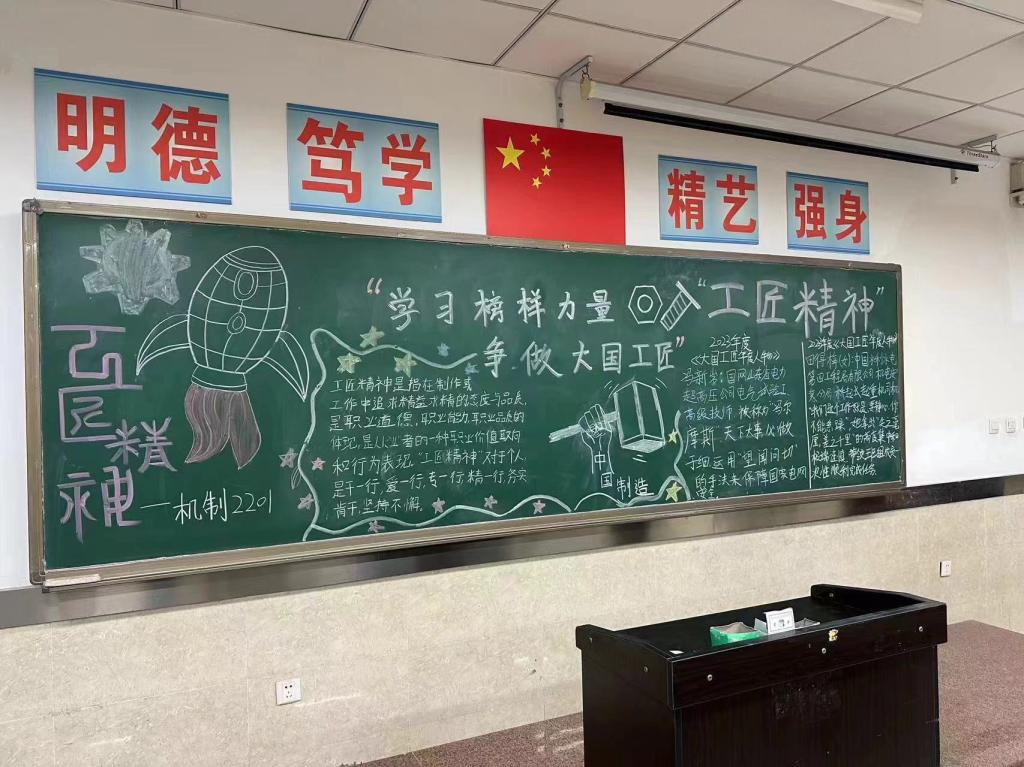 明德
笃学
精艺
强身
工匠
精
神
一机制2201
“学习榜样力量
争做大国工匠”
“工匠精神”
工匠精神是指在制作或
工作中追求精益求精的态度与品质,
是职业道德,职业能力,职业品质的
体现,是从业者的一种职业价值取向
和行为表现。“工匠精神”对于个人,
是干一行,爱一行,专一行,精一行,务实
肯干,坚持不懈。
中
国制造
2023年度
《大国工匠年度人物》
冯新岩:国网山东省电力
超高压公司电气试验工
高级技师 被称为“冯尔
摩斯”天下大事必做
于细,运用“望闻问切”
的手法来保障国家电网
安全
2023年度《大国工匠年度人物》